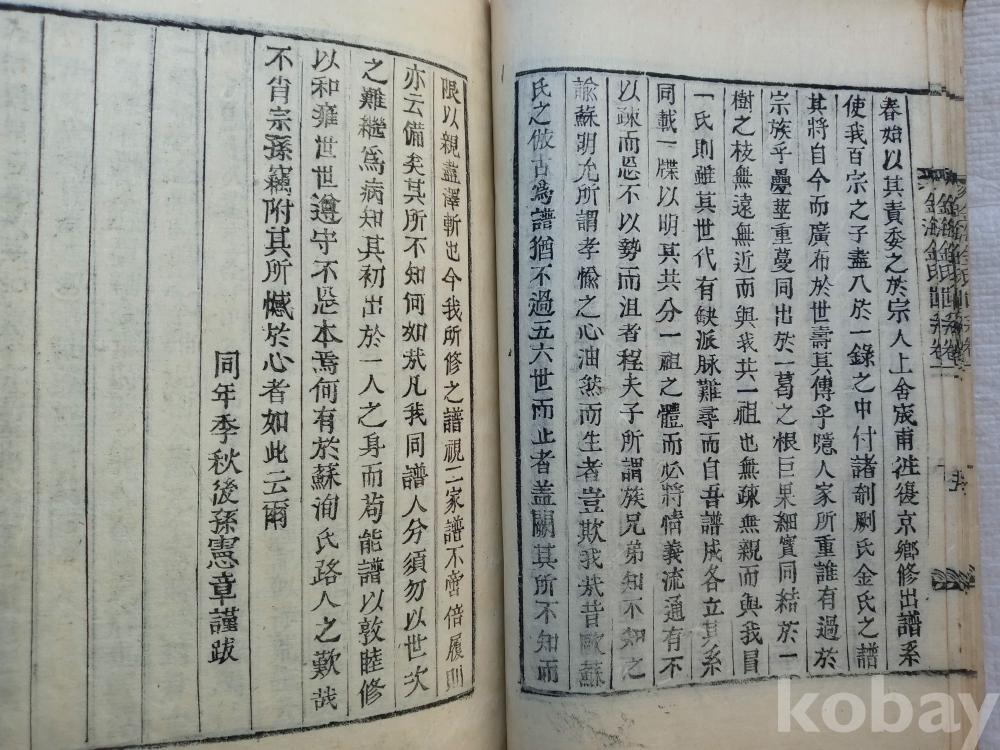 春始以其責委之於宗人上舍宬甫徃復京鄉修出譜系
使我百宗之子盡入於一錄之中付諸剞劂氏金氏之譜
其將自今而廣布於世壽其傳乎噫人家所重誰有過於
宗族乎疊莖重蔓同出於一葛之根巨果細實同結於一
樹之枝無遠無近而與我共一祖也無疎無親而與我冒
一氏則雖其世代有缺派脉難尋而自吾譜成各立其系
同載一牒以明其共分一祖之體而必將情義流通有不
以疎而忘不以勢而沮者程夫子所謂族兄弟知不知之
諭蘇明允所謂孝悌之心油然而生者豈欺我㢤昔歐蘇
氏之倣古爲譜猶不過五六世而止者盖闕其所不知而
限以親盡澤斬也今我所修之譜視二家譜不啻倍履則
亦云備矣其所不知何如㢤凡我同譜人分須勿以世次
之難継爲病知其初出於一人之身而苟能譜以敦睦修
以和雍世世遵守不忘本焉何有於蘇洵氏路人之歎㢤
不肖宗孫竊附其所憾於心者如此云爾
同年季秋後孫憲章謹跋
金海金氏世系卷一
kobay